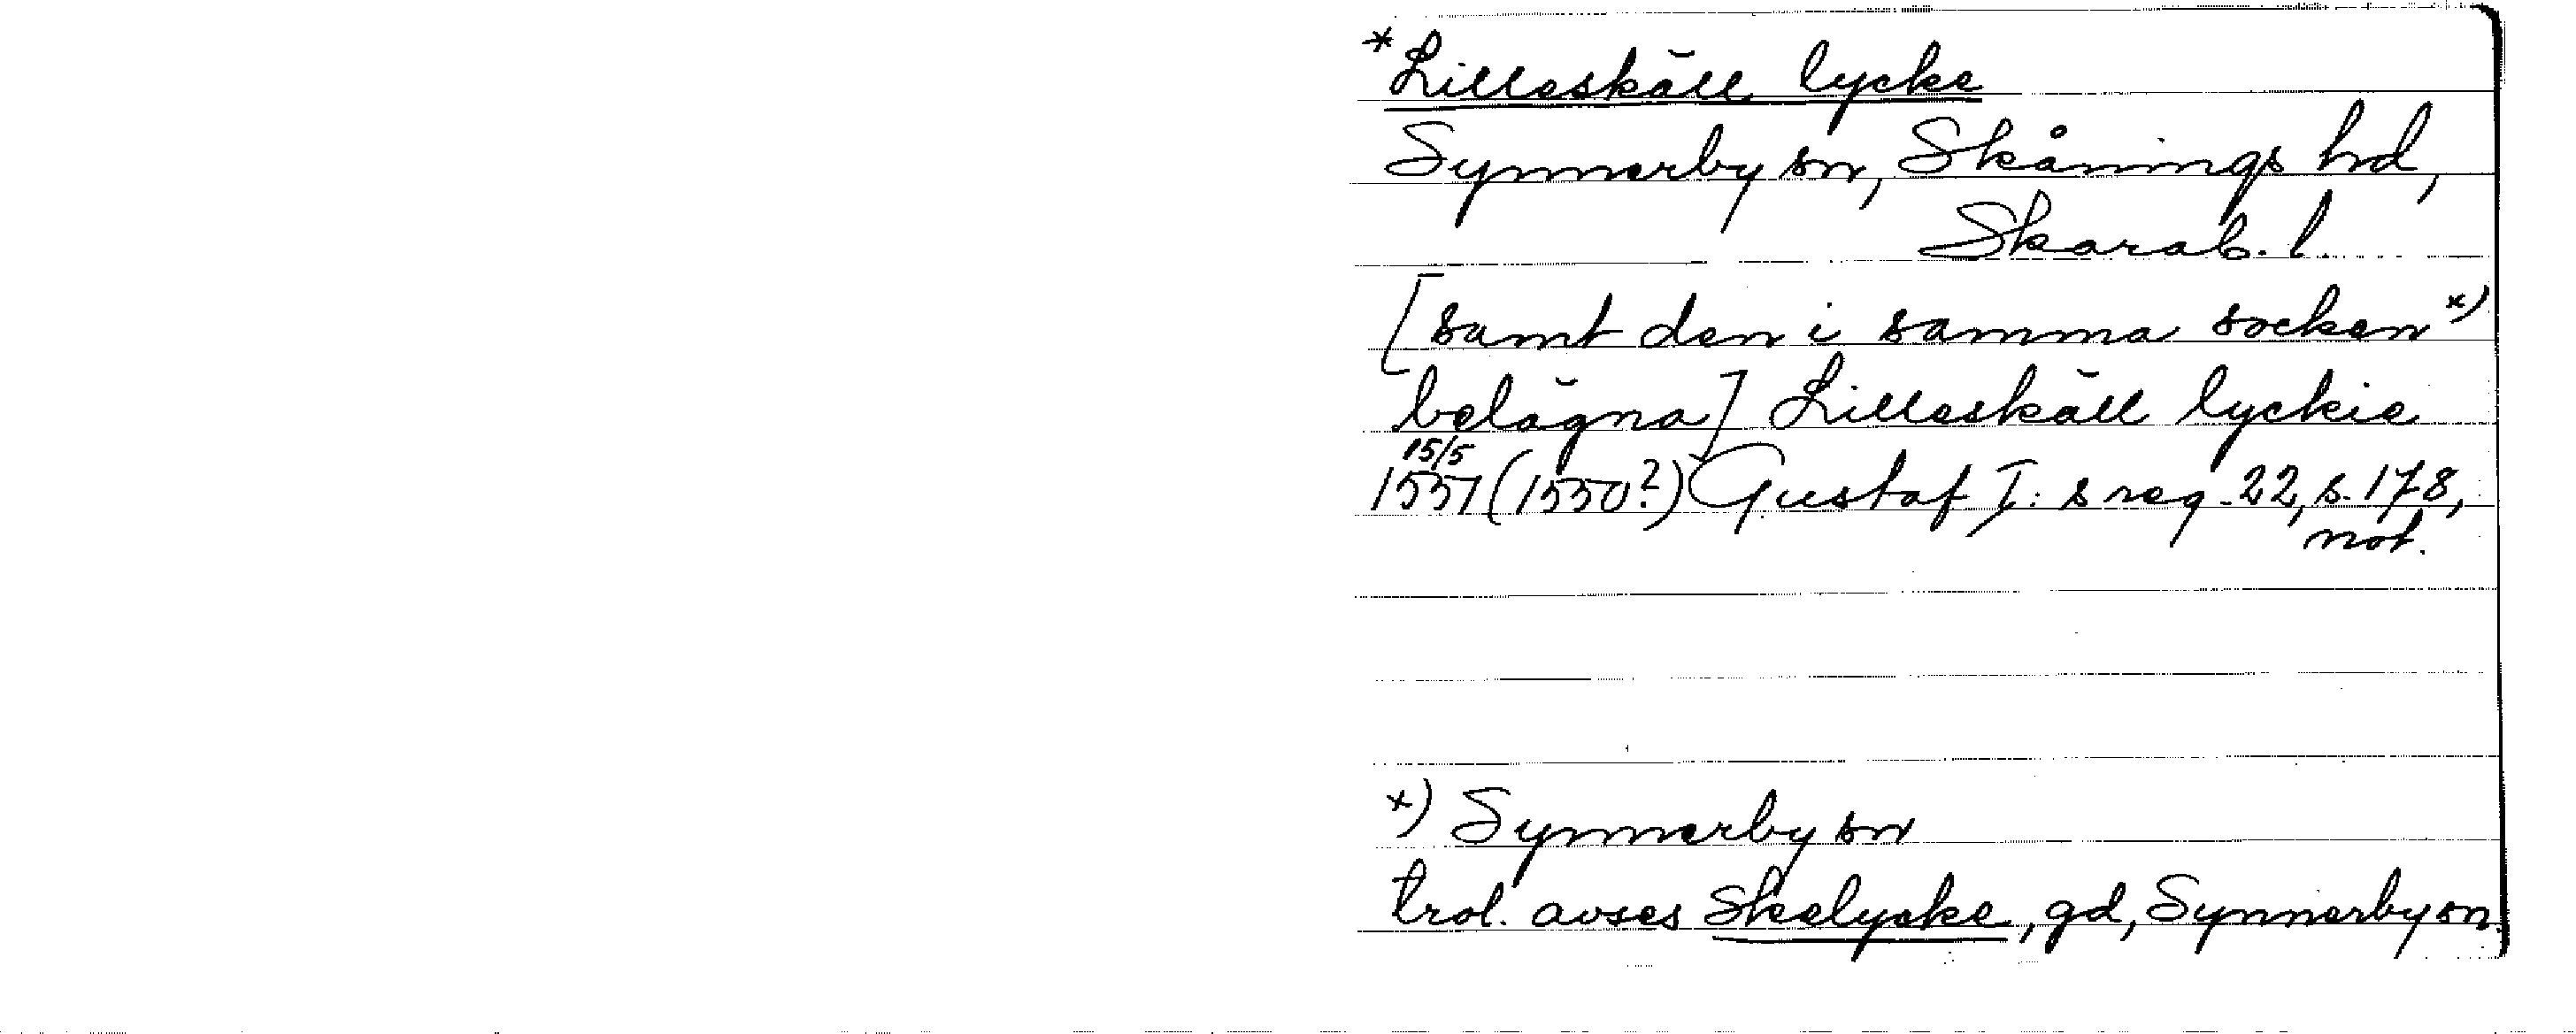 *Lilleskäll lycke
Synnerby sn, Skånings hd,
Skarab. l.
[samt den i samma socken x)
belägna] Lilleskäll lyckie
15/5
1551 (1550?) Gustaf I:s reg. 22, s. 178,
not.
x) Synnerby sn
trol. avses Skelycke, gd, Synnerby sn